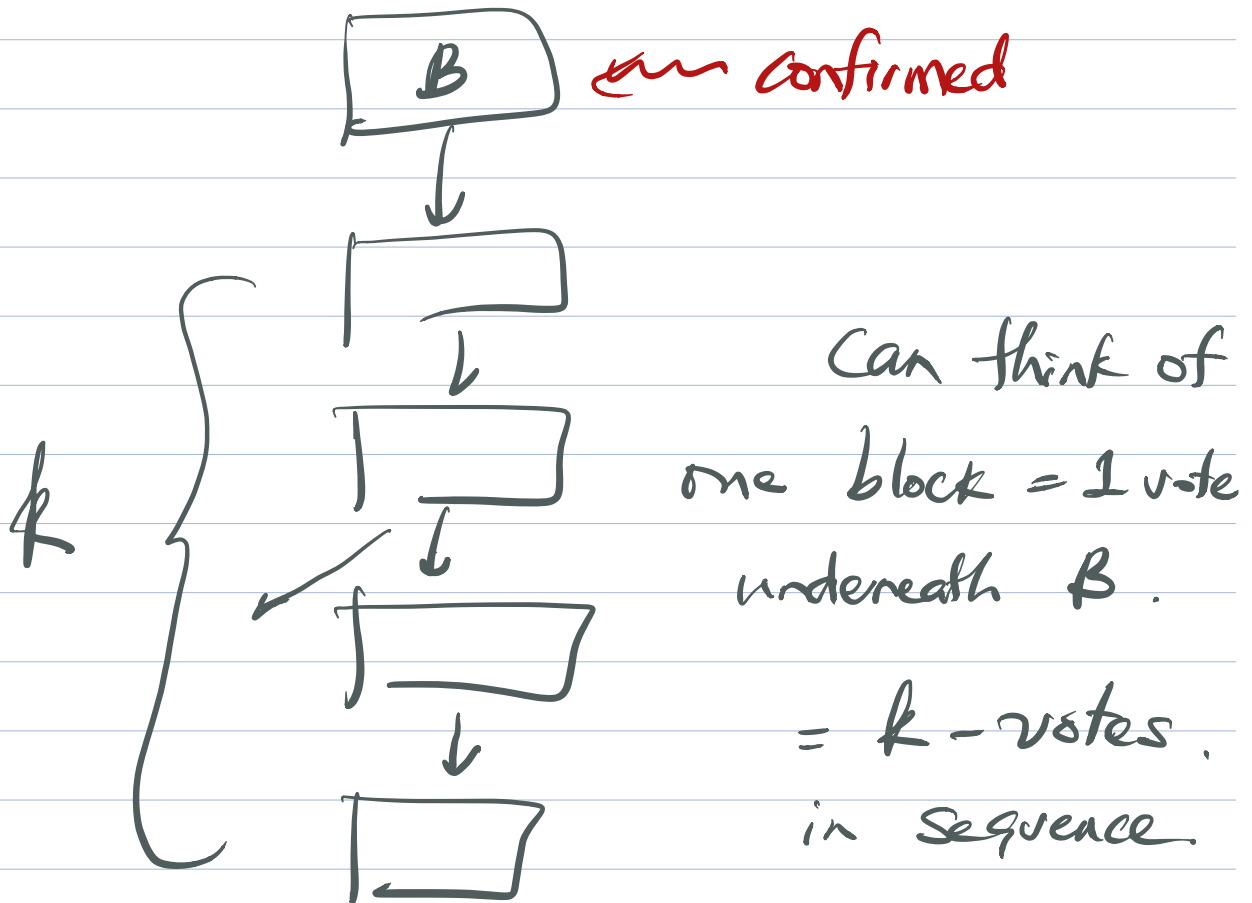 B confirmed
Can think of
k one block = 1 vote
underneath B.
= k-votes.
in sequence